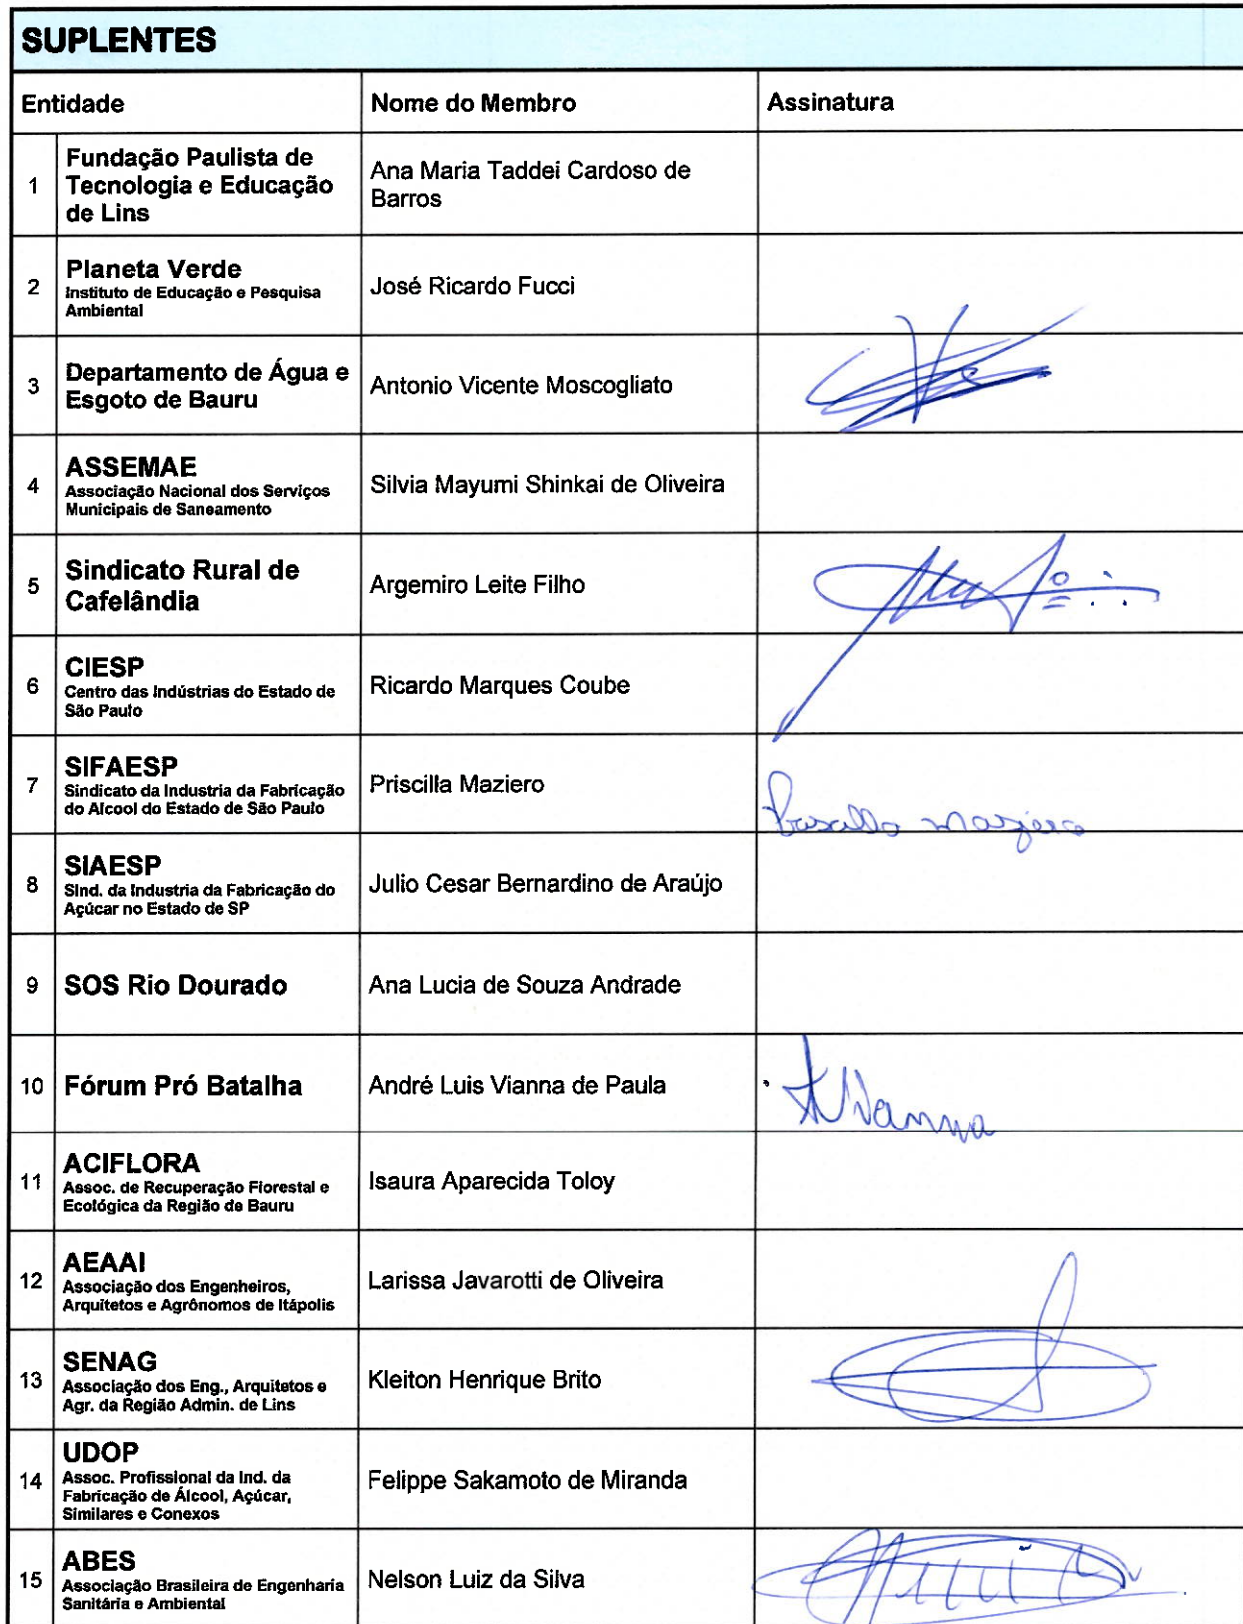 SUPLENTES
Entidade
Nome do Membro
Assinatura
1
Fundação Paulista de
Tecnologia e Educação
de Lins
Ana Maria Taddei Cardoso de
Barros
2
Planeta Verde
Instituto de Educação e Pesquisa
Ambiental
José Ricardo Fucci
3
Departamento de Água e
Esgoto de Bauru
Antonio Vicente Moscogliato
4
ASSEMAE
Associação Nacional dos Serviços
Municipais de Saneamento
Silvia Mayumi Shinkai de Oliveira
5
Sindicato Rural de
Cafelândia
Argemiro Leite Filho
6
CIESP
Centro das Indústrias do Estado de
São Paulo
Ricardo Marques Coube
7
SIFAESP
Sindicato da Industria da Fabricação
do Alcool do Estado de São Paulo
Priscilla Maziero
Priscilla Maziero
8
SIAESP
Sind. da Industria da Fabricação do
Açúcar no Estado de SP
Julio Cesar Bernardino de Araújo
9
SOS Rio Dourado
Ana Lucia de Souza Andrade
10
Fórum Pró Batalha
André Luis Vianna de Paula
AVianna
11
ACIFLORA
Assoc. de Recuperação Florestal e
Ecológica da Região de Bauru
Isaura Aparecida Toloy
12
AEAAI
Associação dos Engenheiros,
Arquitetos e Agrônomos de Itápolis
Larissa Javarotti de Oliveira
13
SENAG
Associação dos Eng., Arquitetos e
Agr. da Região Admin. de Lins
Kleiton Henrique Brito
14
UDOP
Assoc. Profissional da Ind. da
Fabricação de Álcool, Açúcar,
Similares e Conexos
Felippe Sakamoto de Miranda
15
ABES
Associação Brasileira de Engenharia
Sanitária e Ambiental
Nelson Luiz da Silva